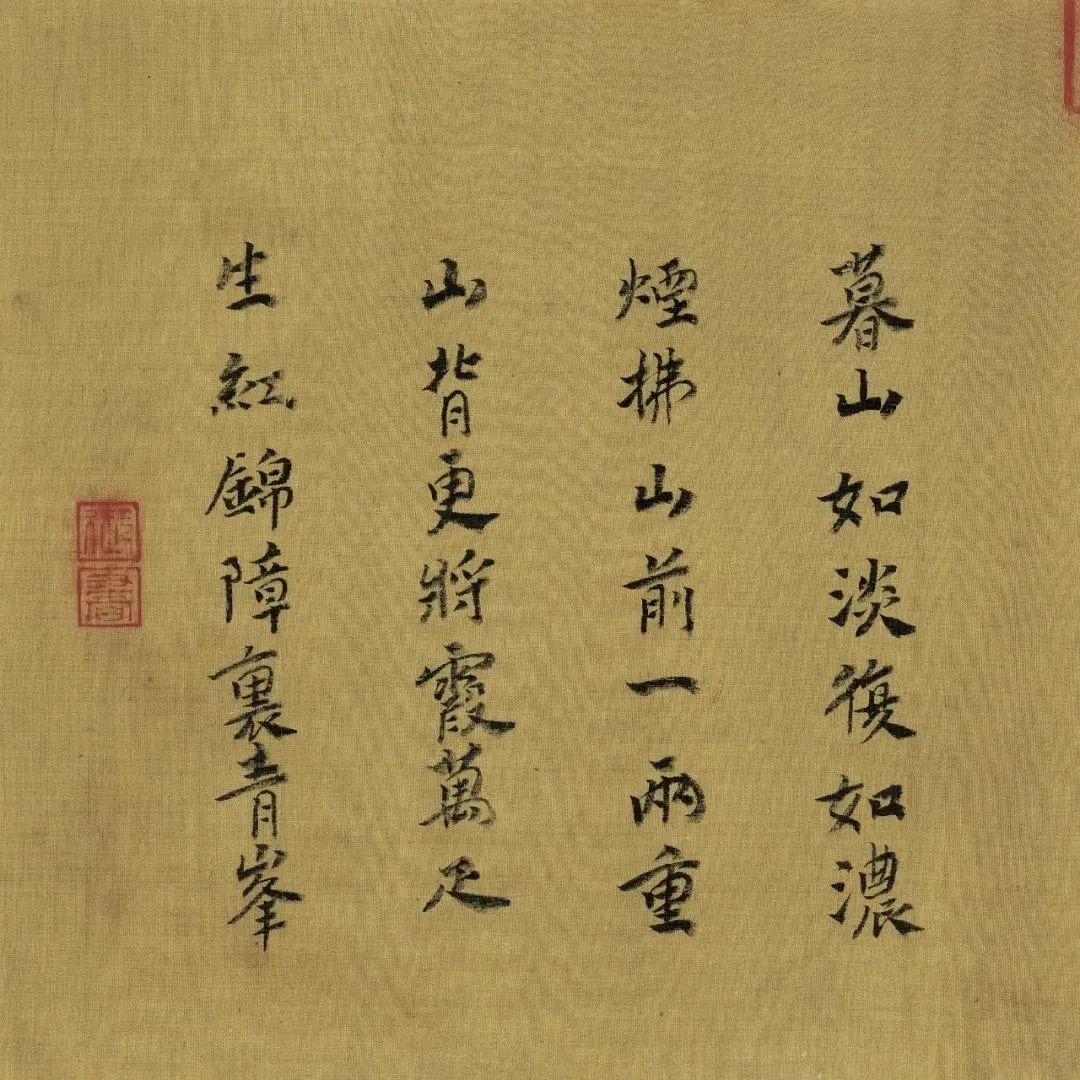 暮山如淡復如濃
煙拂山前一兩重
山背更將霞萬疋
生紅錦障裏青峯